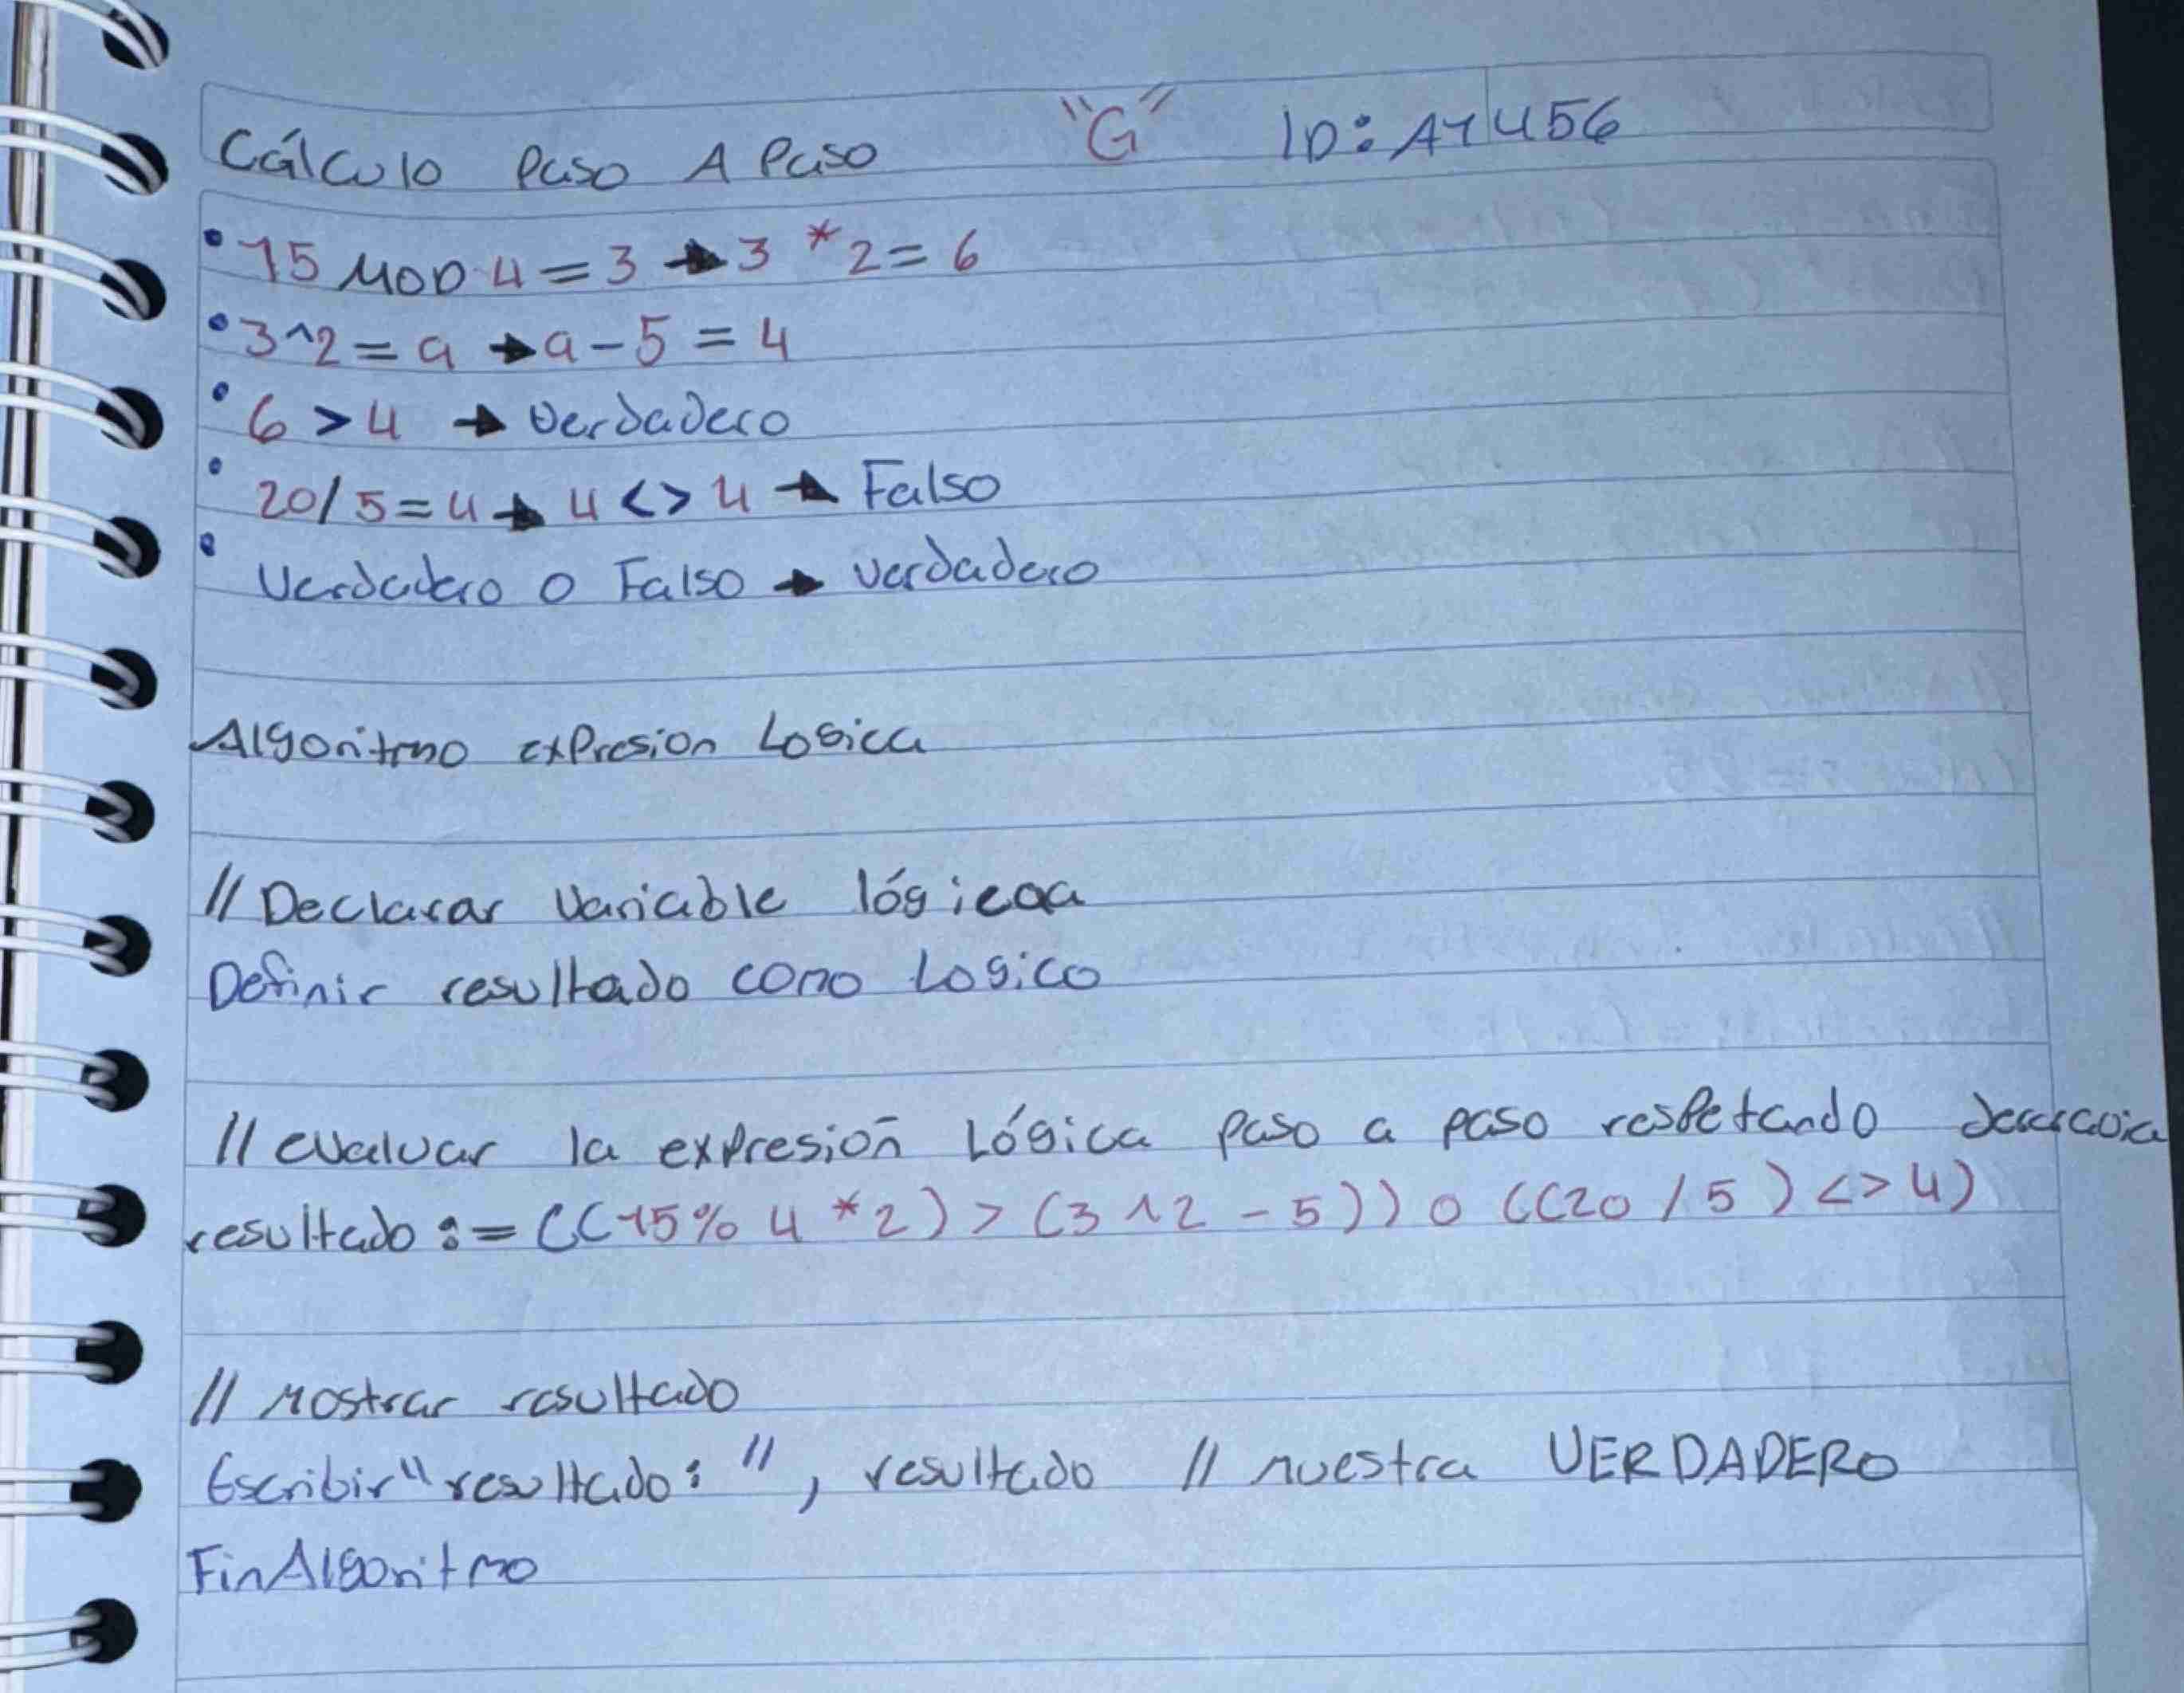 Cálculo Paso A Paso "G" ID: A1456
• 15 MOD 4 = 3 → 3 * 2 = 6
• 3^2 = 9 → 9 - 5 = 4
• 6 > 4 → Verdadero
• 20/5 = 4 → 4 <> 4 → Falso
• Verdadero o Falso → Verdadero
Algoritmo expresion Logica
// Declarar Variable lógicaa
Definir resultado como Logico
// evaluar la expresión Lógica paso a paso respetando
resultado := ((15 % 4 * 2) > (3 ^ 2 - 5)) o ((20 / 5) <> 4)
// Mostrar resultado
Escribir "resultado: ", resultado // muestra VERDADERO
FinAlgoritmo